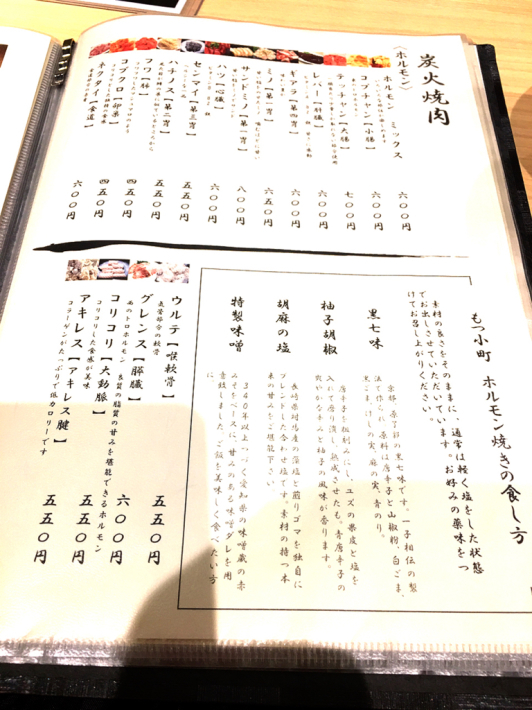 炭火焼肉
〈ホルモン〉
ホルモン ミックス 六〇〇円
コプチャン【小腸】 六〇〇円
テッチャン【大腸】 七〇〇円
レバー【肝臓】 六〇〇円
ギアラ【第四胃】 六〇〇円
ミノ【第一胃】 六五〇円
サンドミノ【第一胃】 八〇〇円
ハツ【心臓】 六〇〇円
センマイ【第三胃】 五五〇円
ハチノス【第二胃】 五五〇円
フワ【肺】 四五〇円
コブクロ【卵巣】 四五〇円
ネクタイ【食道】 六〇〇円
もつ小町 ホルモン焼きの食し方
素材の良さをそのままに、通常は軽く塩をした状態
でお出しさせていただいています。お好みの薬味をつ
けてお召し上がりください。
黒七味
京都、原了郭の黒七味です。一子相伝の製
法で作られ、原料は唐辛子と山椒粉、白ごま、
黒ごま、けしの実、麻の実、青のり。
柚子胡椒
唐辛子を粗刻みにし、ユズの果皮と塩を
入れて磨り潰し、熟成させたもの。青唐辛子の
爽やかな辛みと柚子の風味が香ります。
胡麻の塩
長崎県対馬産の藻塩と煎りゴマを独自に
ブレンドした合わせ塩です。素材の持つ本
来の甘みをご堪能下さい。
特製味噌
340年以上つづく愛知県の味噌蔵の赤
みそをベースに、甘みのある味噌ダレを用
意致しました。ご飯を美味しく食べたい方
に。
ウルテ【喉軟骨】 五五〇円
気管部分の軟骨
グレンス【膵臓】 六〇〇円
肉のトロホルモン 良質の脂質の甘みを堪能できるホルモン
コリコリ【大動脈】 五五〇円
コリコリした食感が美味
アキレス【アキレス腱】 五五〇円
コラーゲンがたっぷりで低カロリーです